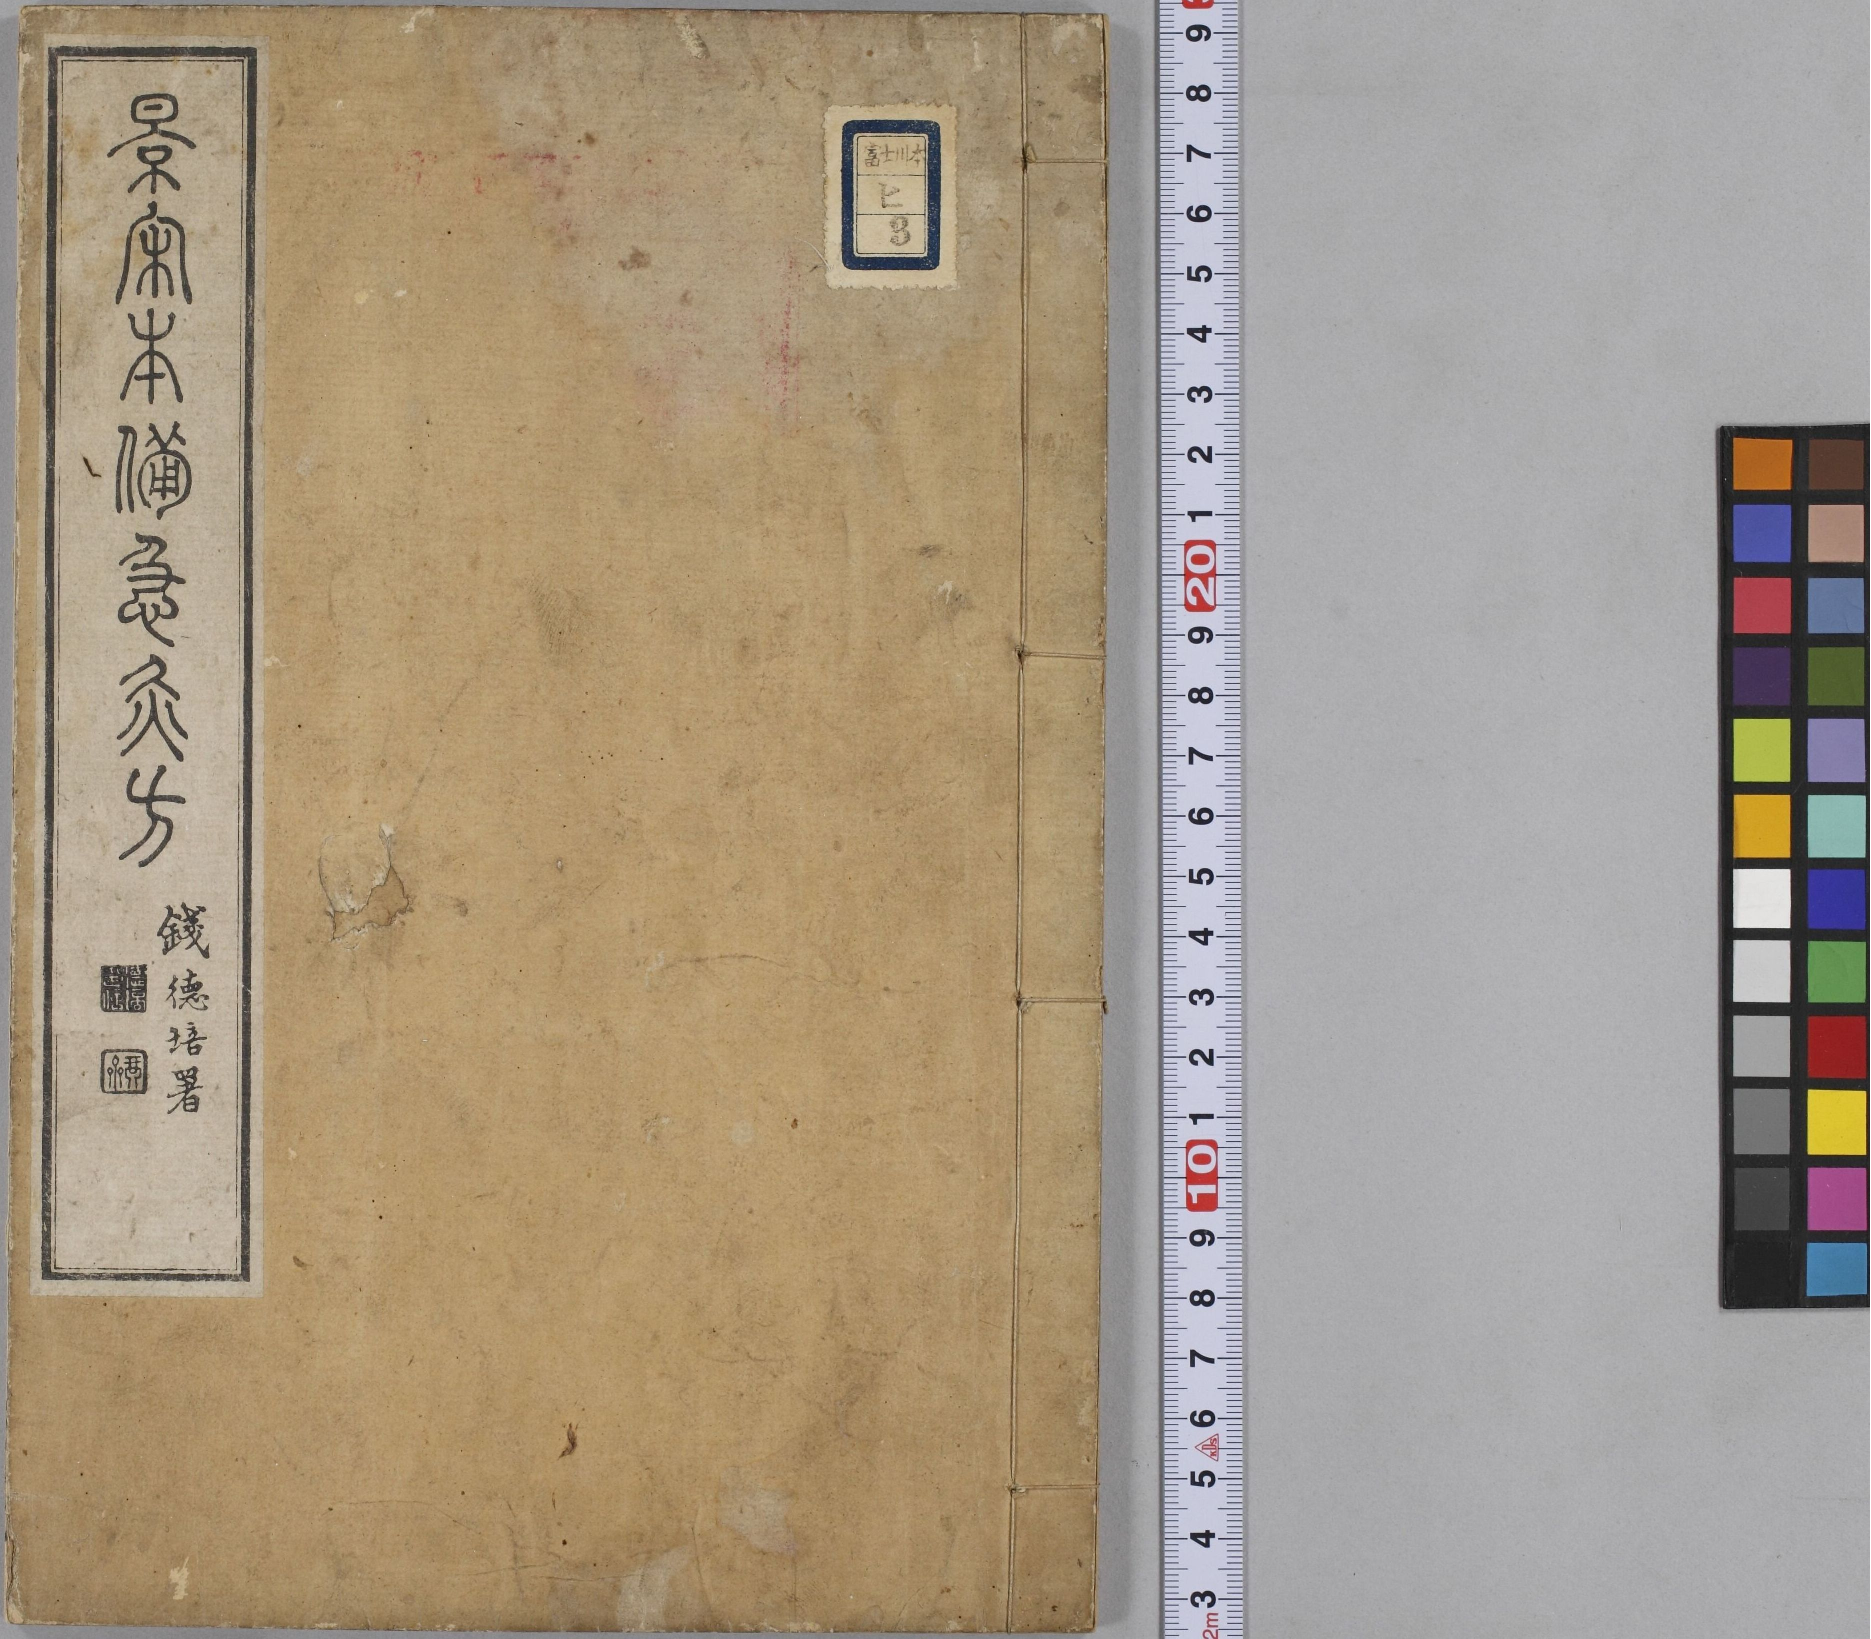 景宋本備急灸方
錢德培署
富士川本
ヒ
3
9
8
7
6
5
4
3
2
1
20
9
8
7
6
5
4
3
2
1
10
9
8
7
6
5
4
3
2m
KDS